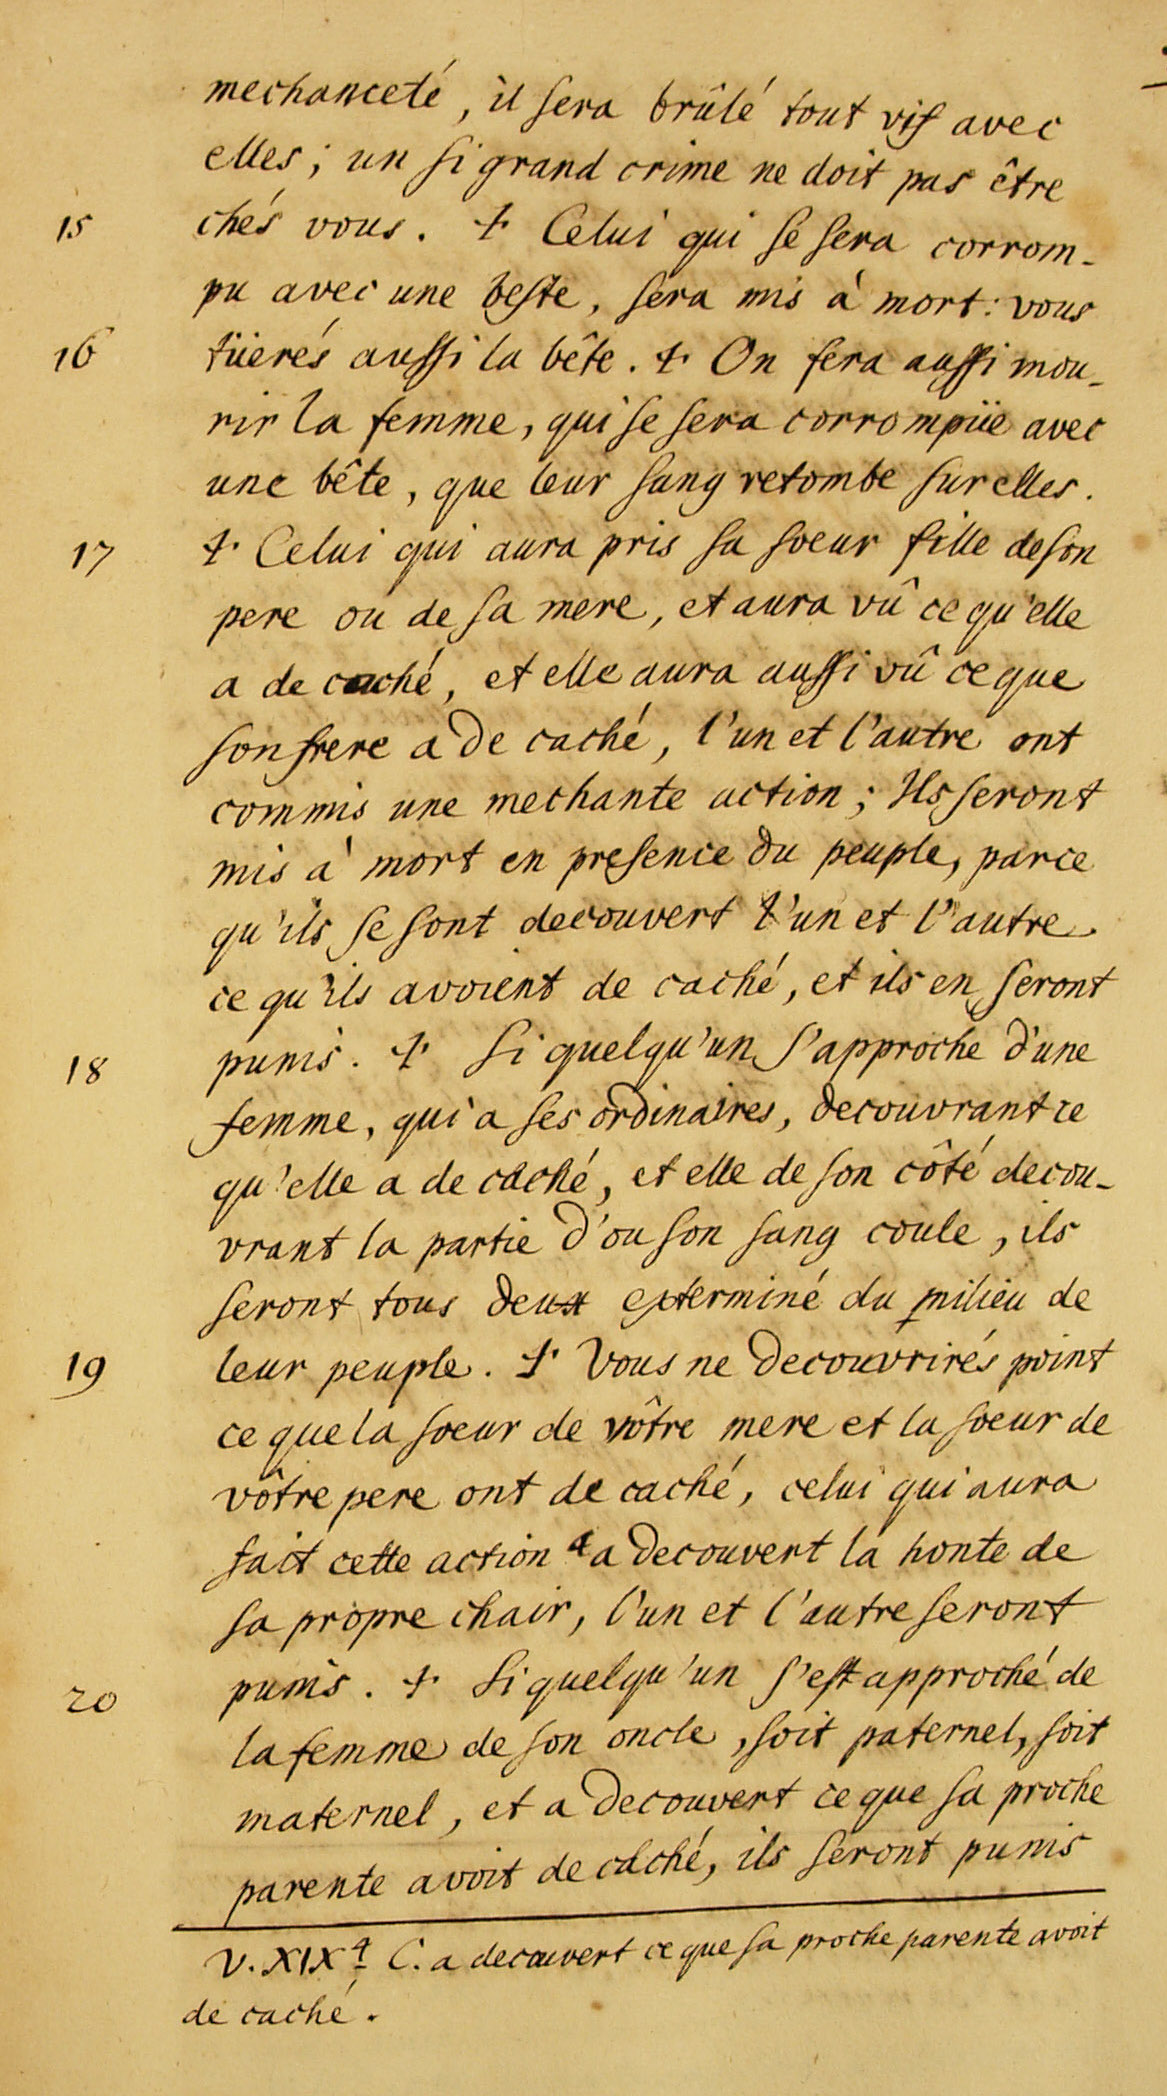 mechanceté, il sera brûlé tout vif avec
elles; un si grand crime ne doit pas être
15 chés vous. ☩ Celui qui se sera corrom-
pu avec une beste, sera mis à mort: vous
16 tüerés aussi la bête. ☩ On fera aussi mou-
rir la femme, qui se sera corrompüe avec
une bête, que leur sang retombe sur elles.
17 ☩ Celui qui aura pris sa soeur fille de son
pere ou de sa mere, et aura vû ce qu'elle
a de caché, et elle aura aussi vû ce que
son frere a de caché, l'un et l'autre ont
commis une mechante action; Ils seront
mis à mort en presence du peuple, parce
qu'ils se sont decouvert l'un et l'autre
ce qu'ils avoient de caché, et ils en seront
18 punis. ☩ Si quelqu'un s'approche d'une
femme, qui a ses ordinaires, decouvrant ce
qu'elle a de caché, et elle de son côté decou-
vrant la partie d'ou son sang coule, ils
seront tous deux exterminé du milieu de
19 leur peuple. ☩ Vous ne decouvrirés point
ce que la soeur de vôtre mere et la soeur de
vôtre pere ont de caché, celui qui aura
fait cette action a a decouvert la honte de
sa propre chair, l'un et l'autre seront
20 punis. ☩ Si quelqu'un s'est approché de
la femme de son oncle, soit paternel, soit
maternel, et a decouvert ce que sa proche
parente avoit de caché, ils seront punis
V. XIX a C. a decouvert ce que sa proche parente avoit
de caché.